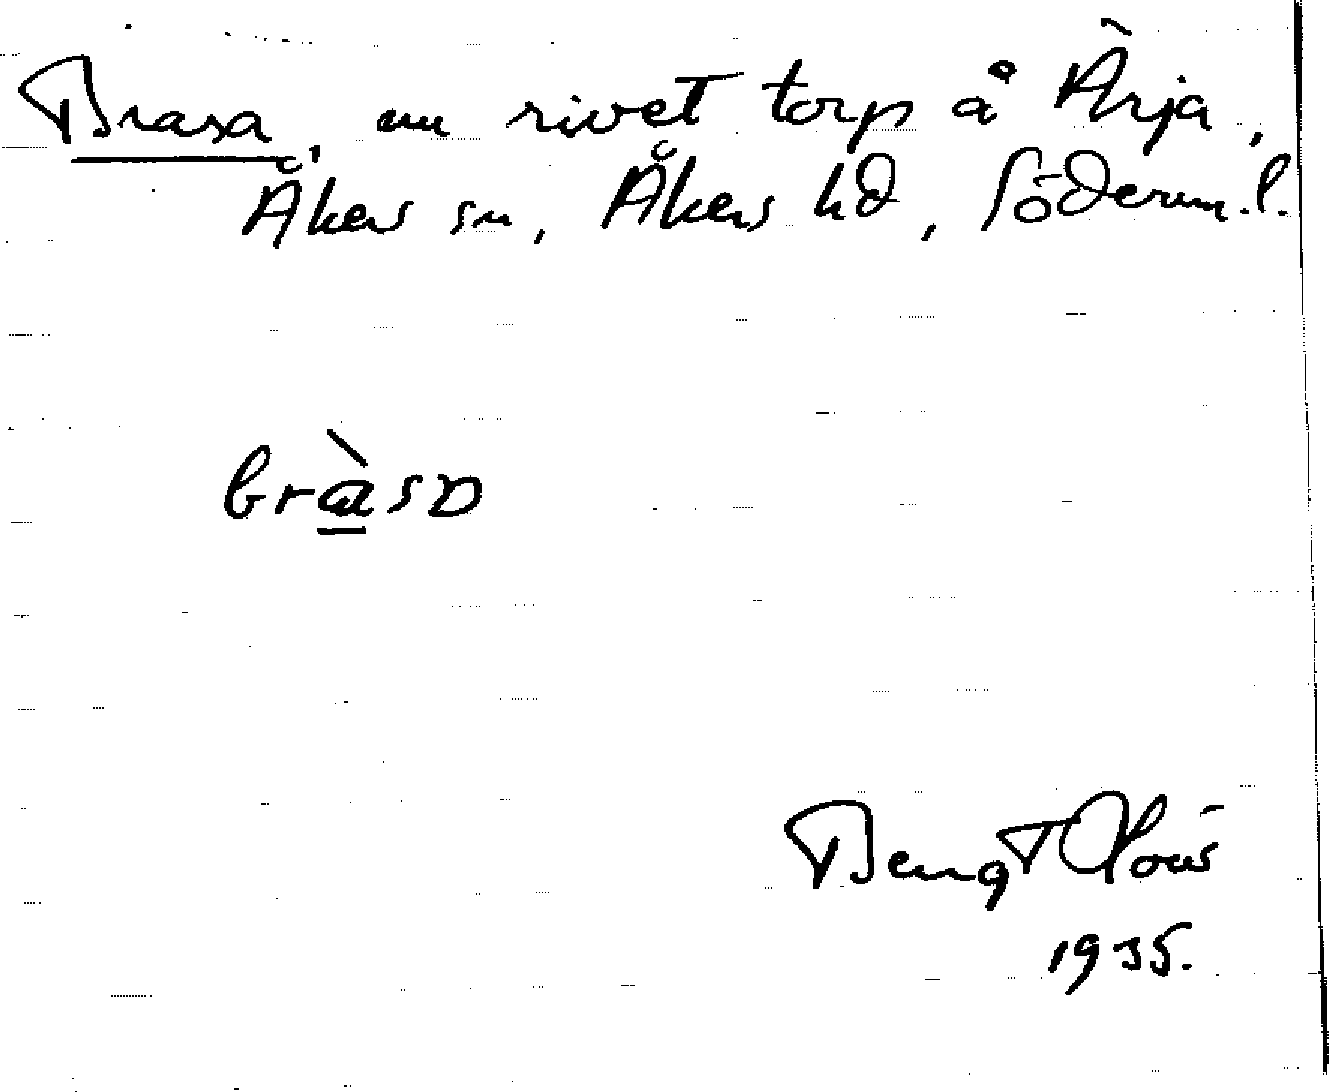 Brasa, nu rivet torp å Ärja,
Åkers sn, Åkers hd, Söderm.l.
bràsɒ
Bengt
1935.